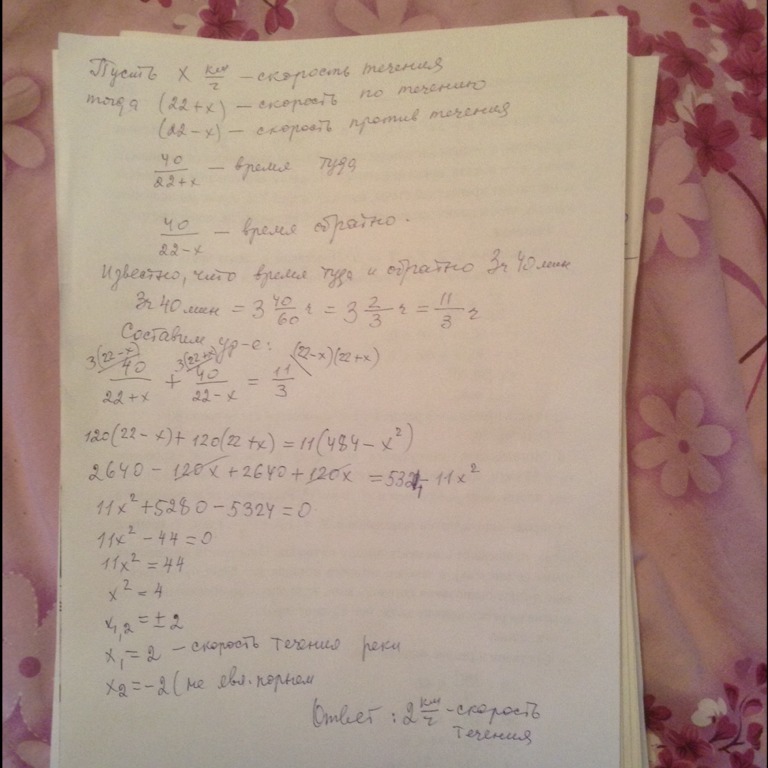 Пусть x км/ч – скорость течения
тогда (22+x) – скорость по течению
(22−x) – скорость против течения
40/(22+x) – время туда
40/(22−x) – время обратно.
Известно, что время туда и обратно 3ч 40 мин
3ч 40 мин = 3 40/60 ч = 3 2/3 ч = 11/3 ч
Составим ур-е:
3(22−x) 3(22+x) (22−x)(22+x)
40/(22+x) + 40/(22−x) = 11/3
120(22−x)+120(22+x)=11(484−x²)
2640−120x+2640+120x=5324−11x²
11x²+5280−5324=0
11x²−44=0
11x²=44
x²=4
x₁,₂=±2
x₁=2 – скорость течения реки
x₂=−2 (не явл. корнем
Ответ: 2 км/ч – скорость
течения